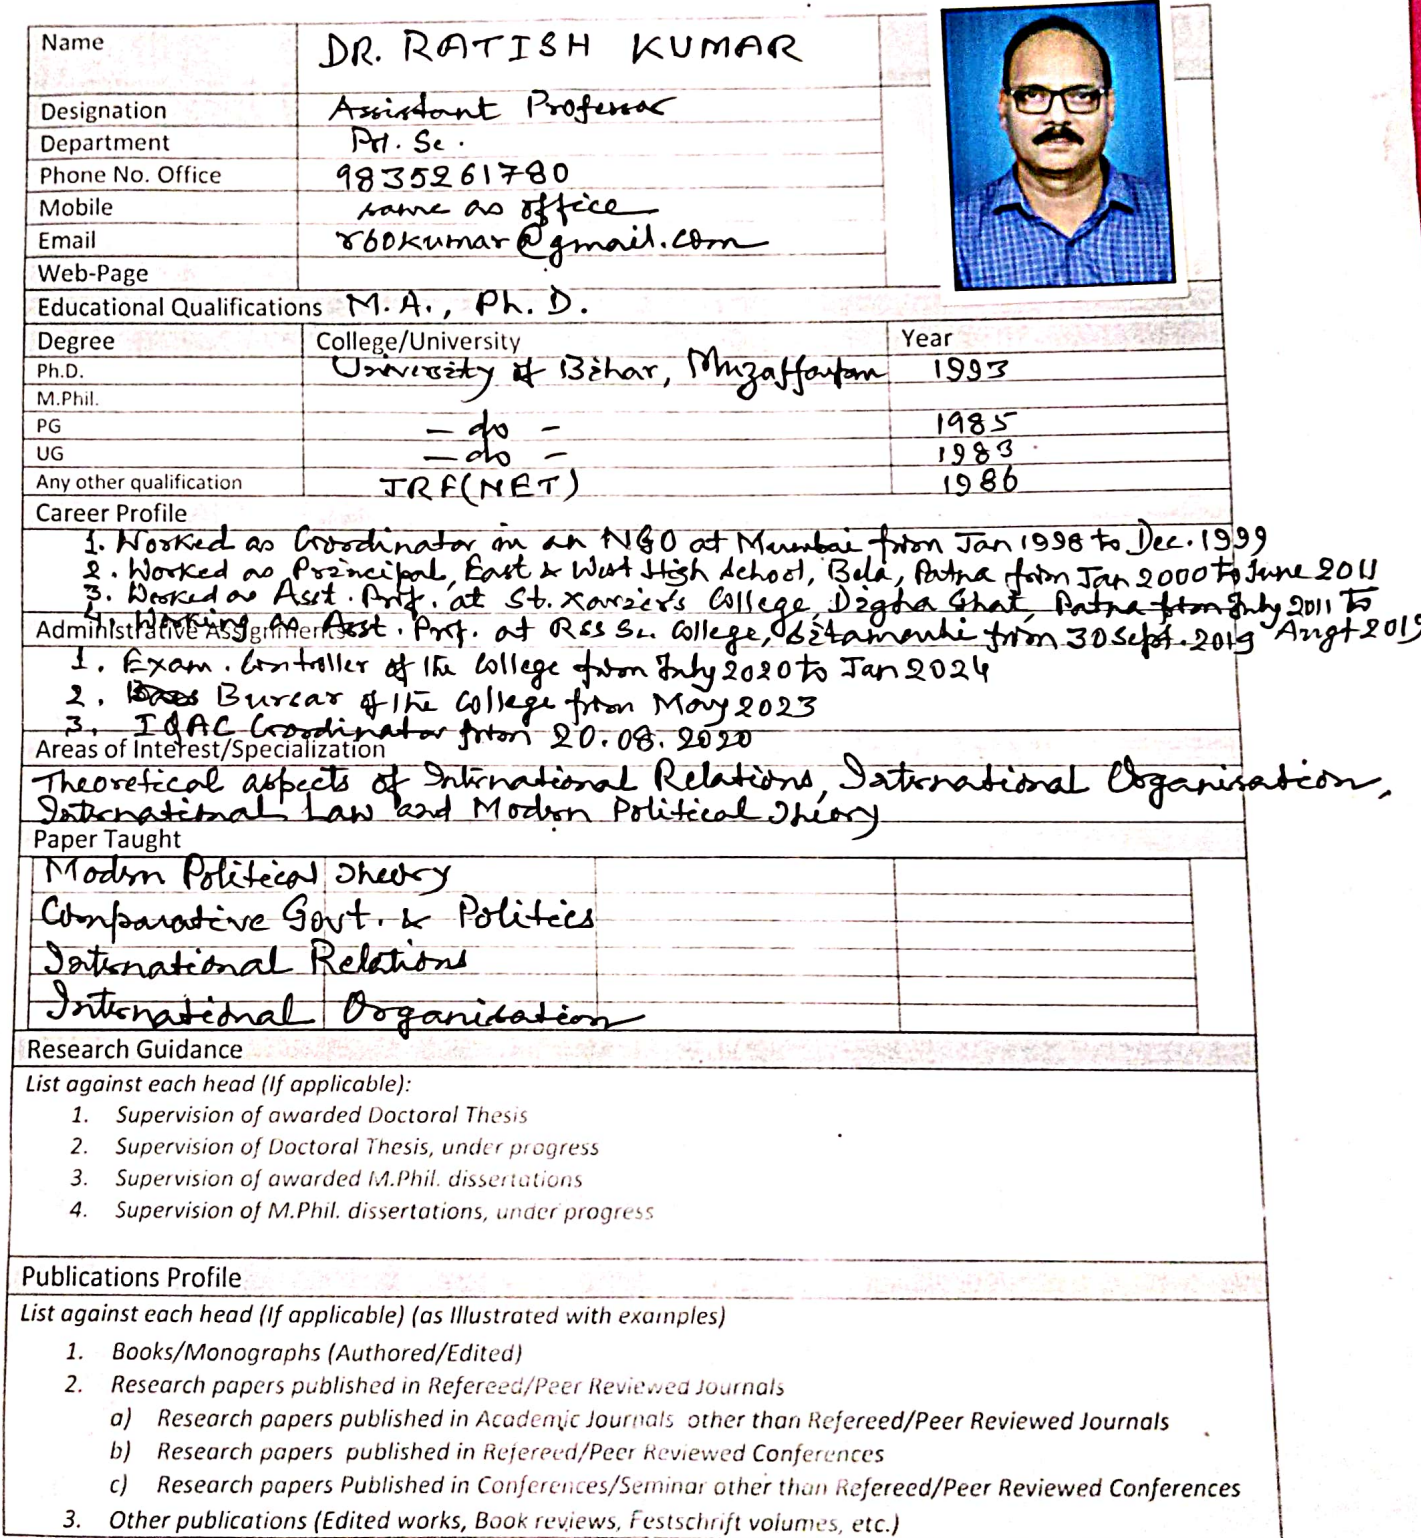 Name DR. RATISH KUMAR
Designation Assistant Professor
Department Pol. Sc.
Phone No. Office 9835261780
Mobile same as office
Email r60kumar@gmail.com
Web-Page
Educational Qualifications M.A., Ph. D.
Degree College/University Year
Ph.D. University of Bihar, Muzaffarpur 1993
M.Phil.
PG – do – 1985
UG – do – 1983
Any other qualification JRF(NET) 1986
Career Profile
1. Worked as Coordinator in an NGO at Mumbai from Jan 1998 to Dec. 1999
2. Worked as Principal, East & West High School, Bela, Patna from Jan 2000 to June 2011
3. Worked as Asst. Prof. at St. Xavier's College, Digha Ghat, Patna from July 2011 to Augt 2019
4. Working as Asst. Prof. at RSS Sc. College, Sitamarhi from 30 Sept. 2019
Administrative Assignments
1. Exam. Controller of the College from July 2020 to Jan 2024
2. Bursar of the College from May 2023
3. IQAC Coordinator from 20.08.2020
Areas of Interest/Specialization
Theoretical aspects of International Relations, International Organisation,
International Law and Modern Political Theory
Paper Taught
Modern Political Theory
Comparative Govt. & Politics
International Relations
International Organisation
Research Guidance
List against each head (If applicable):
1. Supervision of awarded Doctoral Thesis
2. Supervision of Doctoral Thesis, under progress
3. Supervision of awarded M.Phil. dissertations
4. Supervision of M.Phil. dissertations, under progress
Publications Profile
List against each head (If applicable) (as Illustrated with examples)
1. Books/Monographs (Authored/Edited)
2. Research papers published in Refereed/Peer Reviewed Journals
a) Research papers published in Academic Journals other than Refereed/Peer Reviewed Journals
b) Research papers published in Refereed/Peer Reviewed Conferences
c) Research papers Published in Conferences/Seminar other than Refereed/Peer Reviewed Conferences
3. Other publications (Edited works, Book reviews, Festschrift volumes, etc.)